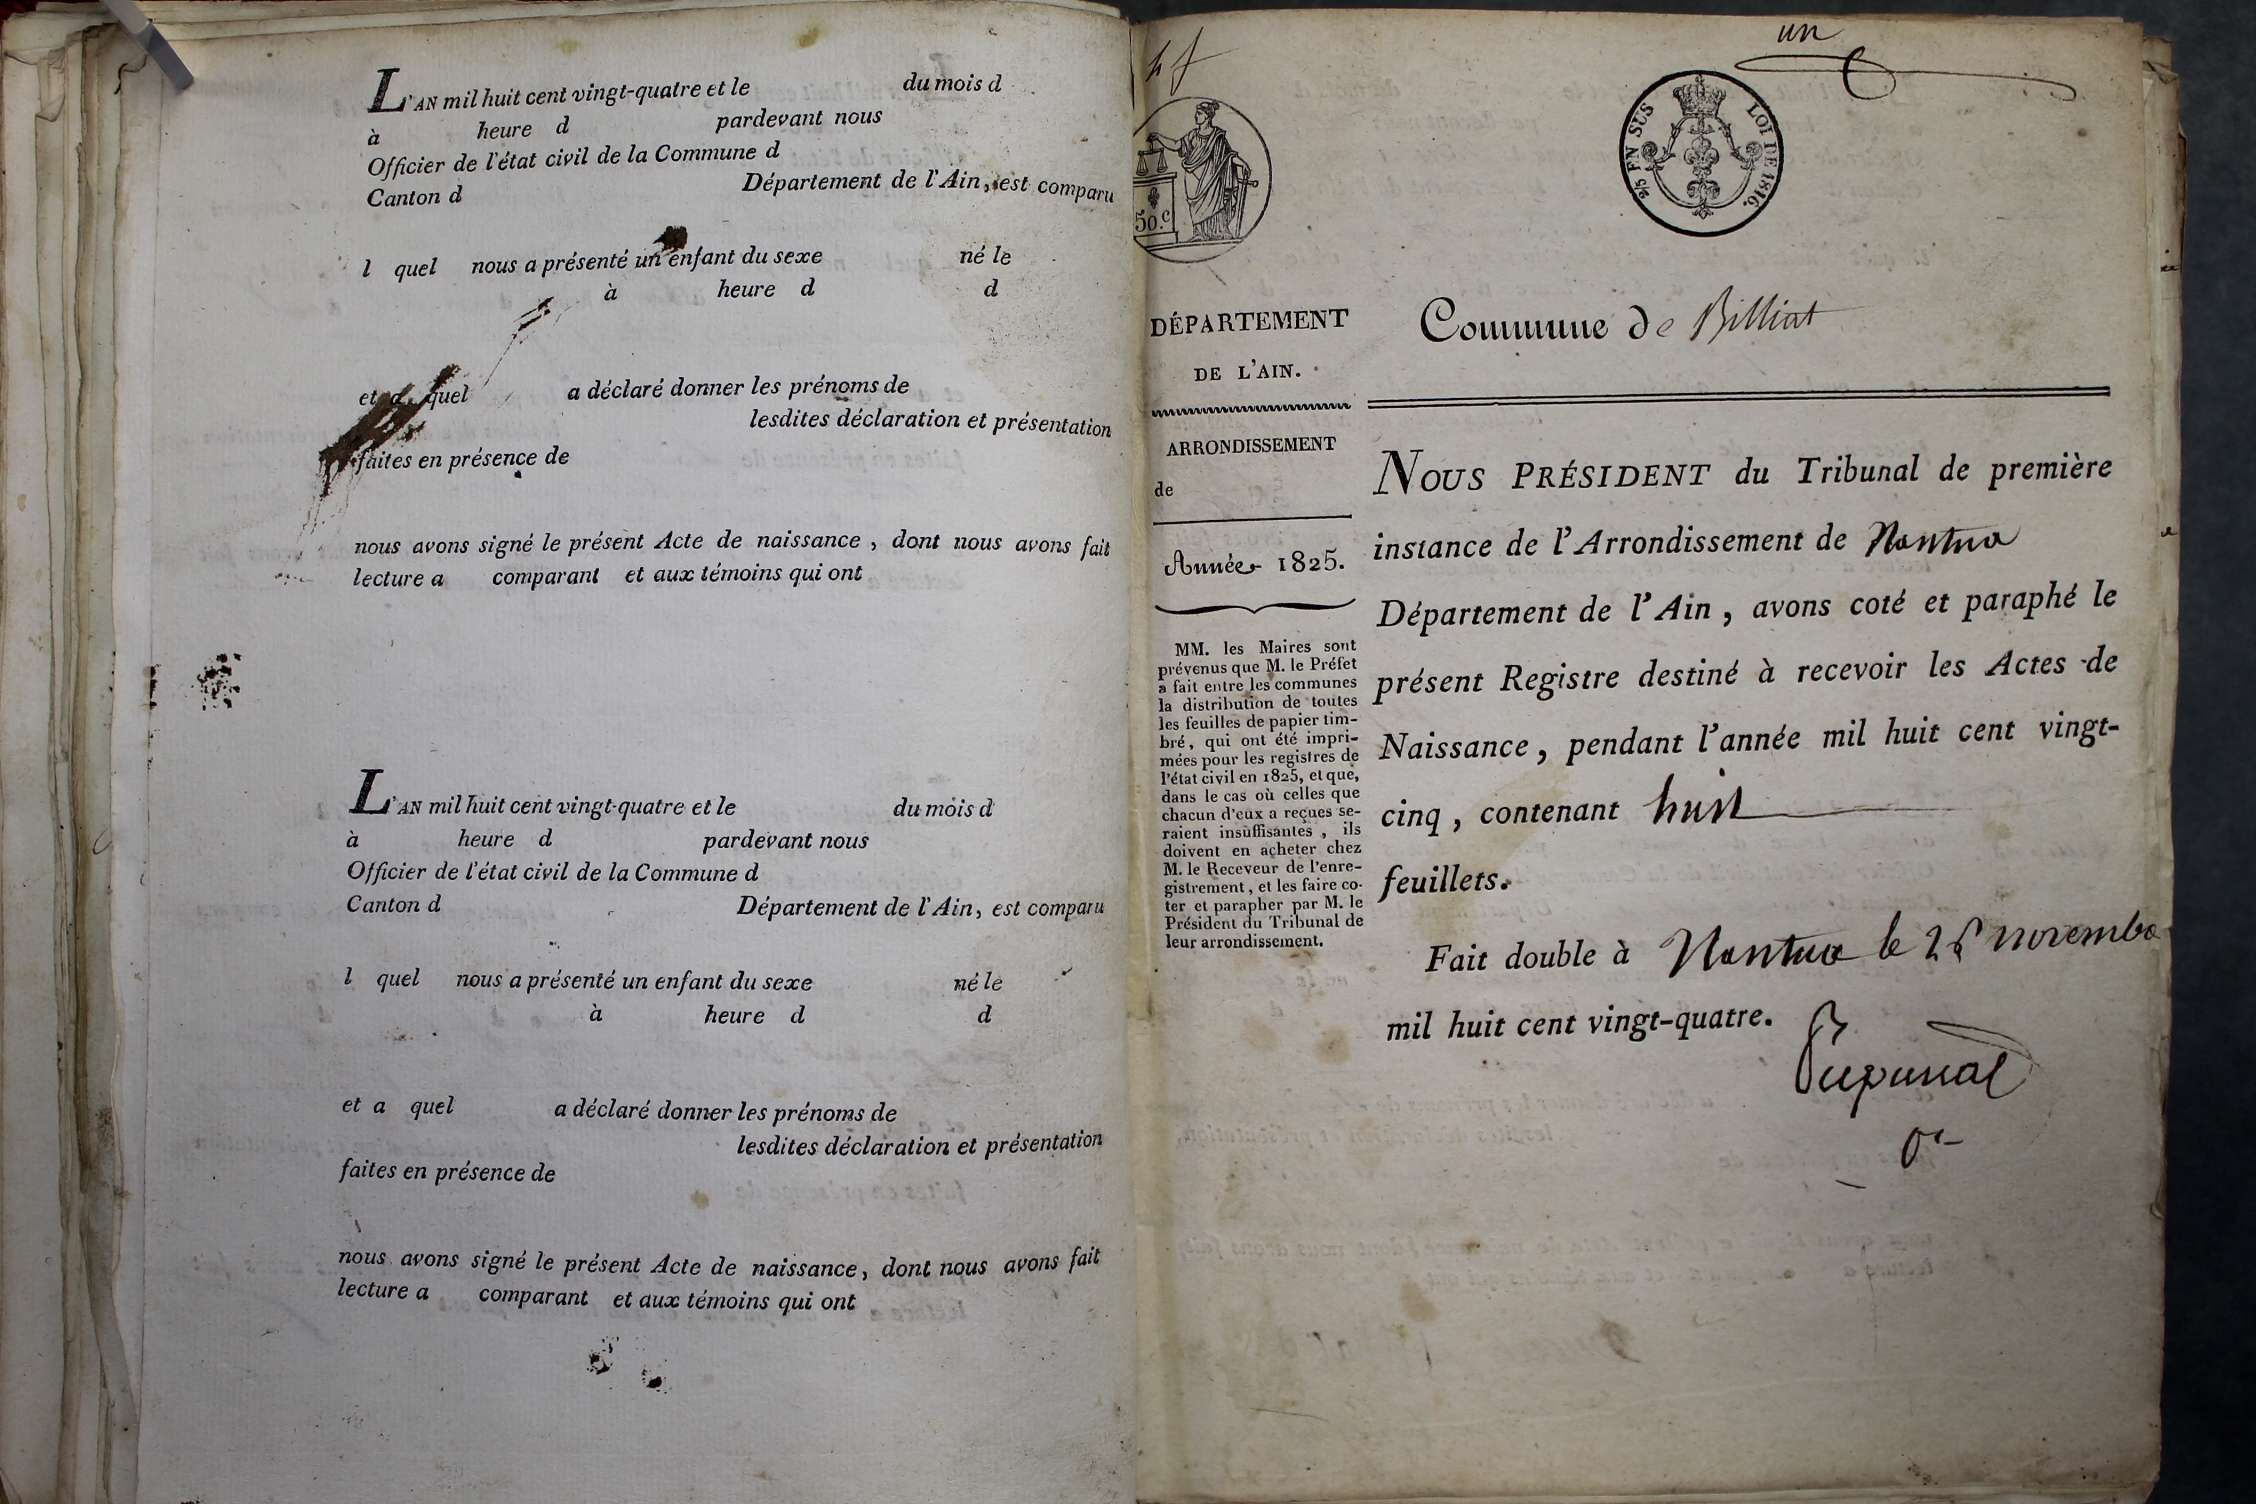 L'AN mil huit cent vingt-quatre et le du mois d
à heure d pardevant nous
Officier de l'état civil de la Commune d
Canton d Département de l'Ain, est comparu
l quel nous a présenté un enfant du sexe né le
à heure d d
et a quel a déclaré donner les prénoms de
lesdites déclaration et présentation
faites en présence de
nous avons signé le présent Acte de naissance, dont nous avons fait
lecture a comparant et aux témoins qui ont
L'AN mil huit cent vingt-quatre et le du mois d
à heure d pardevant nous
Officier de l'état civil de la Commune d
Canton d Département de l'Ain, est comparu
l quel nous a présenté un enfant du sexe né le
à heure d d
et a quel a déclaré donner les prénoms de
lesdites déclaration et présentation
faites en présence de
nous avons signé le présent Acte de naissance, dont nous avons fait
lecture a comparant et aux témoins qui ont
un
50.c
EN SUS LOI DE 1816.
DÉPARTEMENT
DE L'AIN.
ARRONDISSEMENT
de
Année 1825.
MM. les Maires sont
prévenus que M. le Préfet
a fait entre les communes
la distribution de toutes
les feuilles de papier tim-
bré, qui ont été impri-
mées pour les registres de
l'état civil en 1825, et que,
dans le cas où celles que
chacun d'eux a reçues se-
raient insuffisantes, ils
doivent en acheter chez
M. le Receveur de l'enre-
gistrement, et les faire co-
ter et parapher par M. le
Président du Tribunal de
leur arrondissement.
Commune de Billiat
NOUS PRÉSIDENT du Tribunal de première
instance de l'Arrondissement de Nantua
Département de l'Ain, avons coté et paraphé le
présent Registre destiné à recevoir les Actes de
Naissance, pendant l'année mil huit cent vingt-
cinq, contenant huit
feuillets.
Fait double à Nantua le novembre
mil huit cent vingt-quatre.